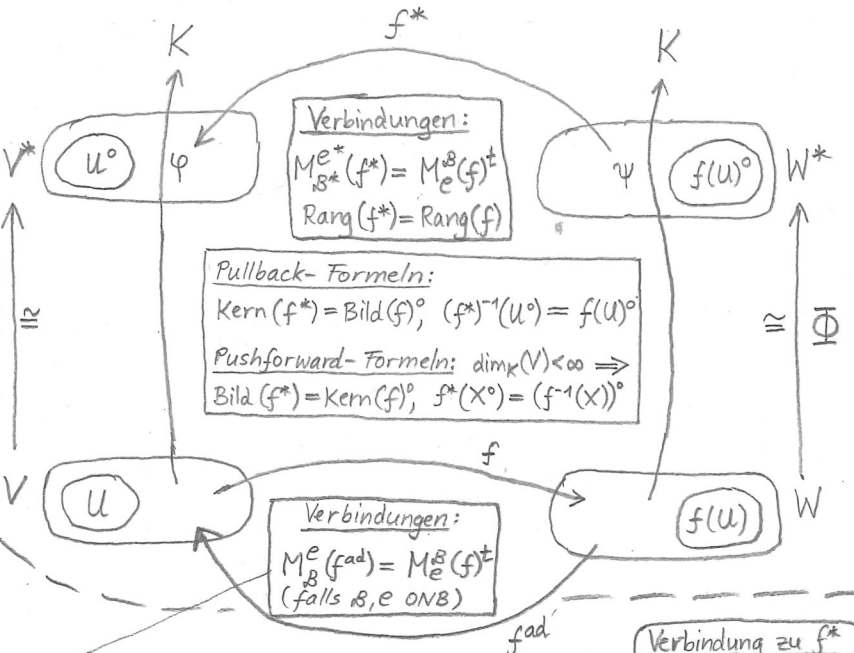 f*
K
K
Verbindungen:
M^{e*}_{B*}(f*) = M^{B}_{e}(f)^t
Rang(f*) = Rang(f)
V*
U°
φ
ψ
f(U)°
W*
Pullback-Formeln:
Kern(f*) = Bild(f)°, (f*)⁻¹(U°) = f(U)°
Pushforward-Formeln: dim_K(V)<∞ ⇒
Bild(f*) = Kern(f)°, f*(X°) = (f⁻¹(X))°
≅
≅
Φ
f
V
U
f(U)
W
Verbindungen:
M^{e}_{B}(f^{ad}) = M^{B}_{e}(f)^t
(falls B, e ONB)
f^{ad}
Verbindung zu f*